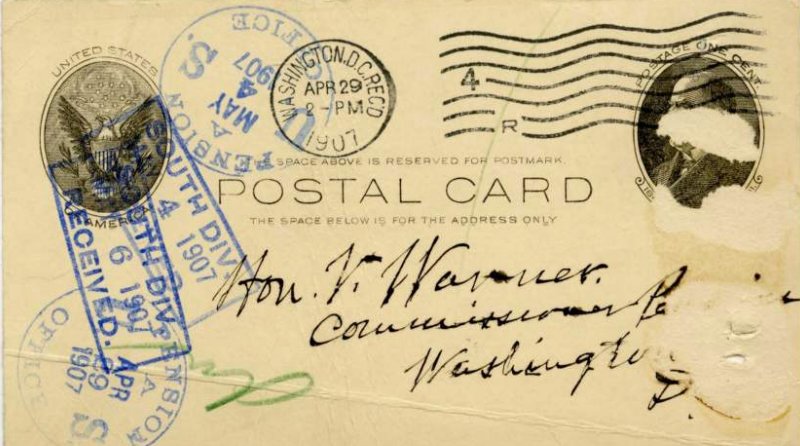 UNITED STATES
OF AMERICA
U. S. PENSION OFFICE
A
MAY
4
1907
WASHINGTON, D.C. REC'D
APR 29
2-PM
1907
4
R
POSTAGE ONE CENT
THE SPACE ABOVE IS RESERVED FOR POSTMARK.
POSTAL CARD
THE SPACE BELOW IS FOR THE ADDRESS ONLY
SOUTH DIV.
4 1907
SOUTH DIV.
6 1907
RECEIVED.
Hon. V. Warner.
Commissioner
Washington
D.
PENSION OFFICE
A
APR
29
1907
S.